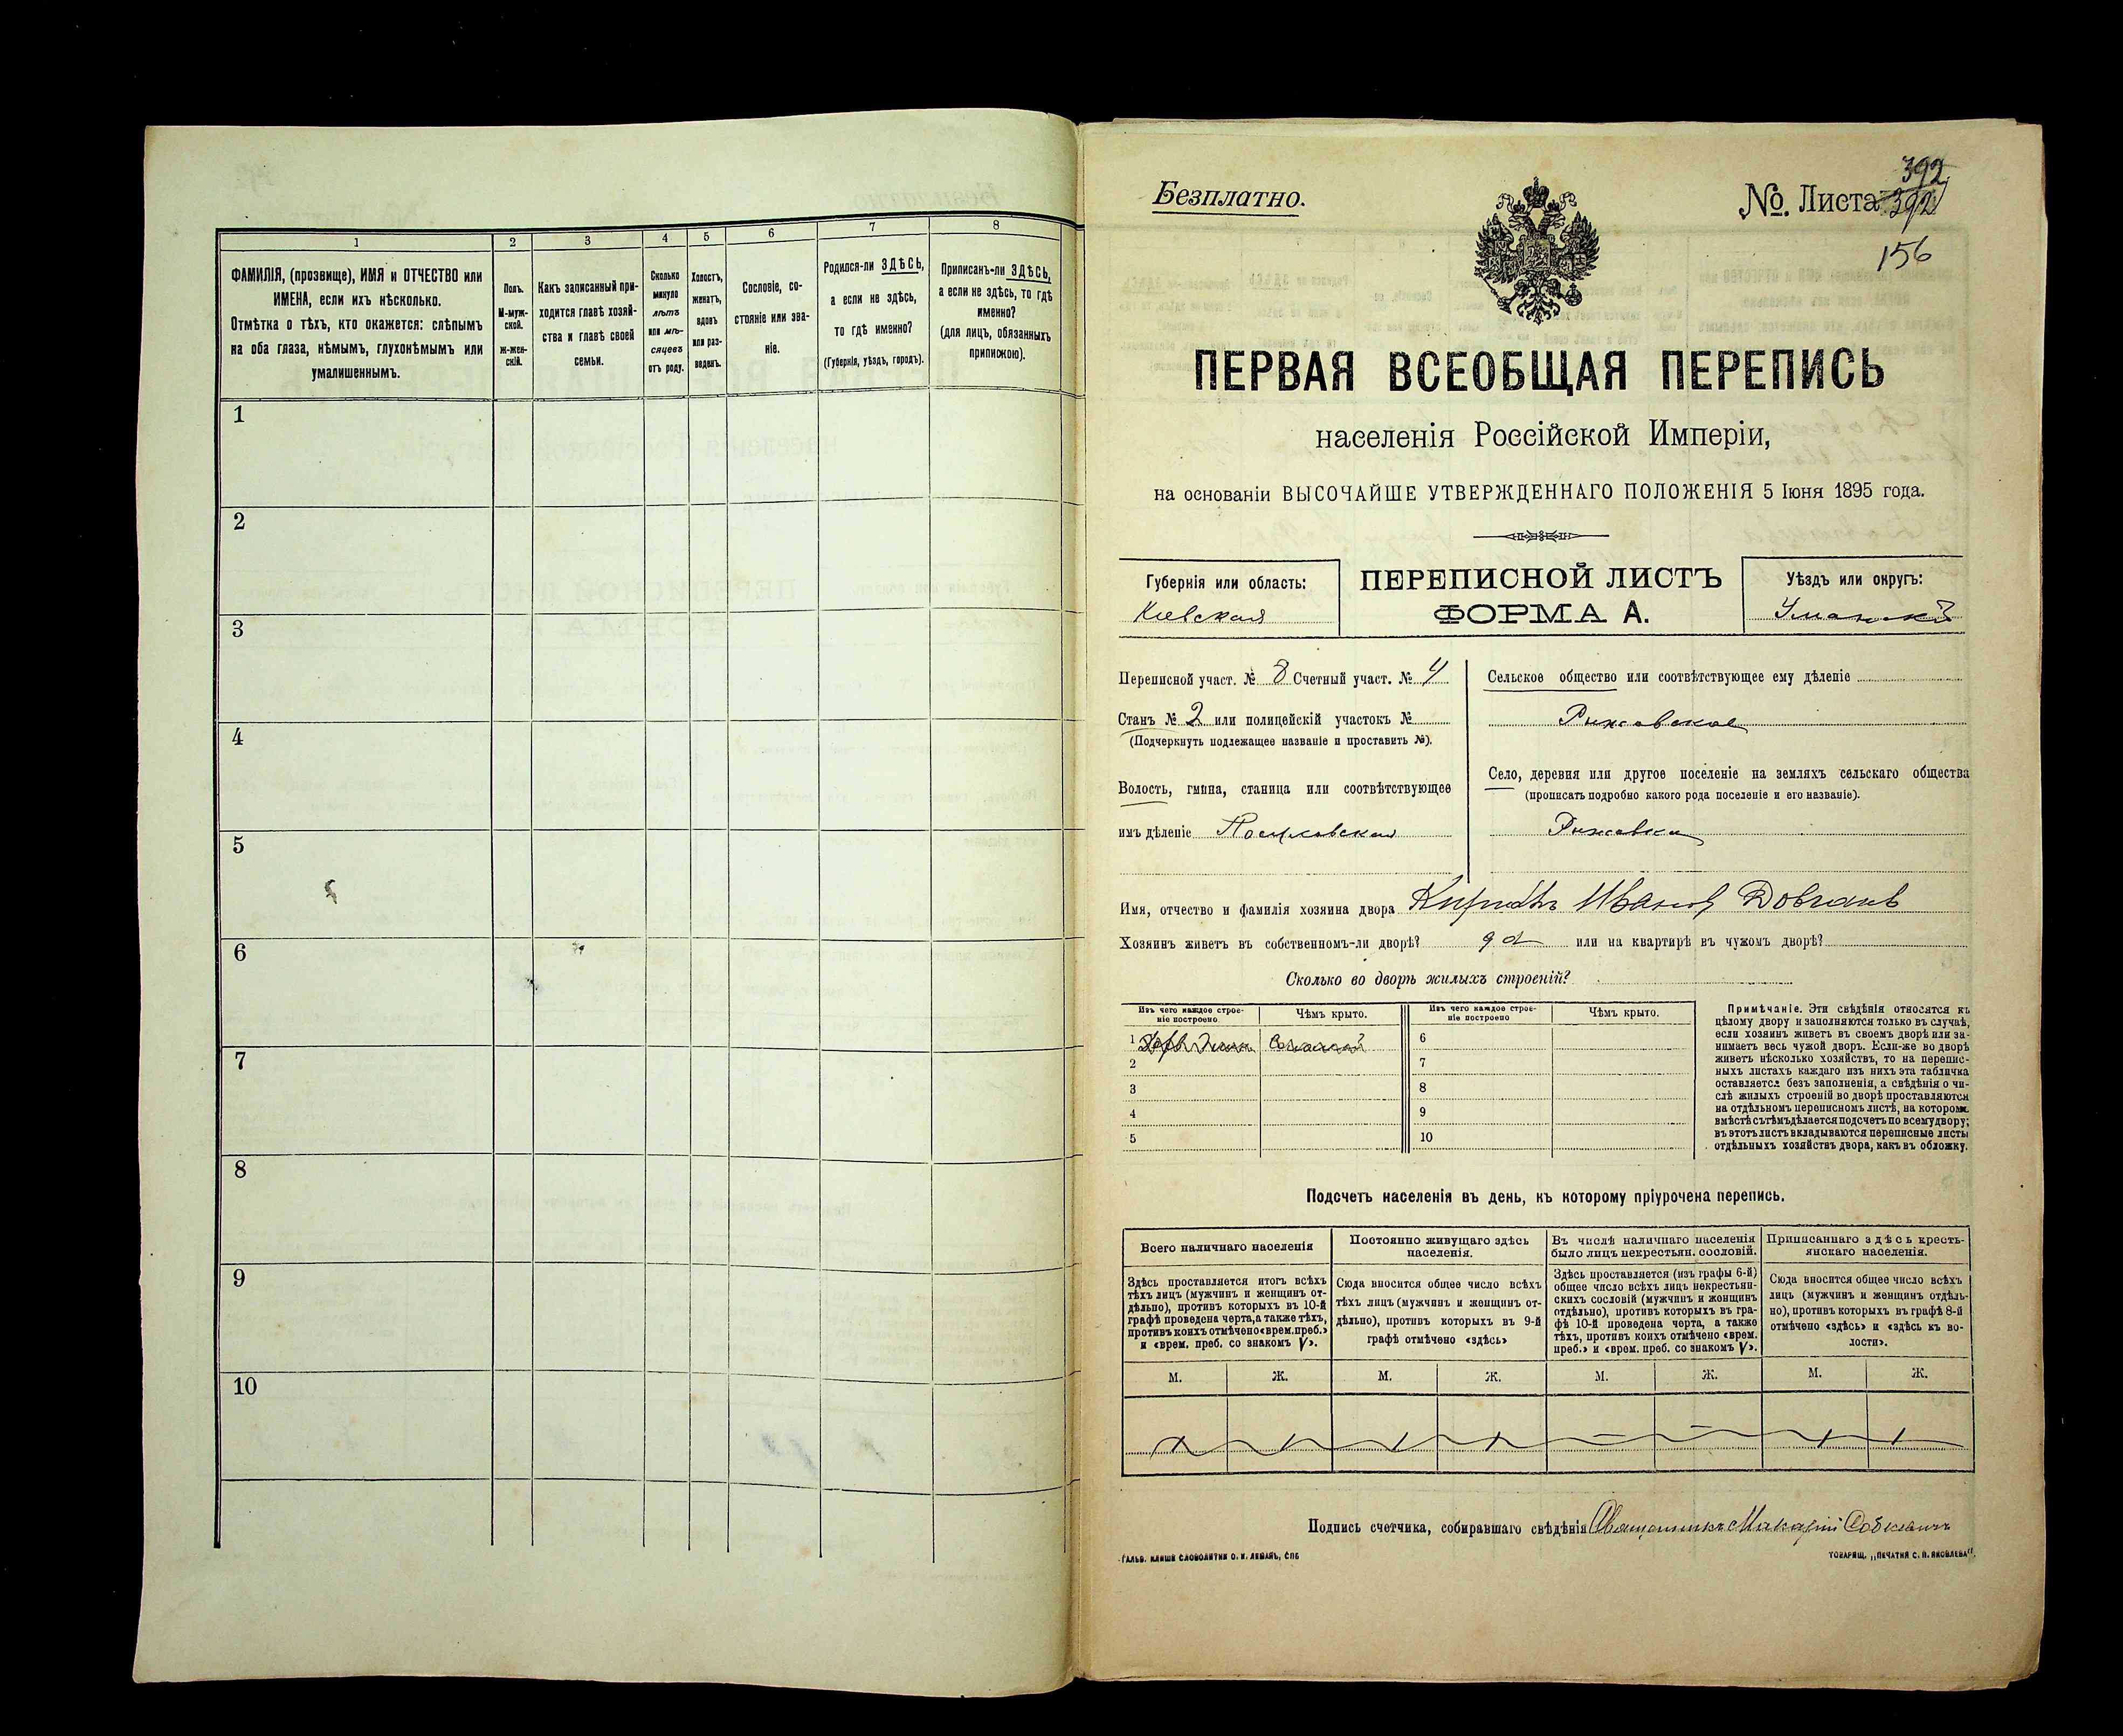 1 2 3 4 5 6 7 8
ФАМИЛІЯ, (прозвище), ИМЯ и ОТЧЕСТВО или
ИМЕНА, если ихъ нѣсколько.
Отмѣтка о тѣхъ, кто окажется: слѣпымъ
на оба глаза, нѣмымъ, глухонѣмымъ или
умалишеннымъ.
Полъ.
М-муж-
ской.
Ж-жен-
скій.
Какъ записанный при-
ходится главѣ хозяй-
ства и главѣ своей
семьи.
Сколько
минуло
лѣтъ
или мѣ-
сяцевъ
отъ роду.
Холостъ,
женатъ,
вдовъ
или раз-
веденъ.
Сословіе, со-
стояніе или зва-
ніе.
Родился-ли ЗДѢСЬ,
а если не здѣсь,
то гдѣ именно?
(Губернія, уѣздъ, городъ).
Приписанъ-ли ЗДѢСЬ,
а если не здѣсь, то гдѣ
именно?
(для лицъ, обязанныхъ
припискою).
1
2
3
4
5
6
7
8
9
10
392
Безплатно.
№. Листа 392
156
ПЕРВАЯ ВСЕОБЩАЯ ПЕРЕПИСЬ
населенія Россійской Имперіи,
на основаніи ВЫСОЧАЙШЕ УТВЕРЖДЕННАГО ПОЛОЖЕНІЯ 5 Іюня 1895 года.
Губернія или область:
Кіевская
ПЕРЕПИСНОЙ ЛИСТЪ
ФОРМА А.
Уѣздъ или округъ:
Уманскій
Переписной участ. № 8 Счетный участ. № 4
Станъ № 2 или полицейскій участокъ №
(Подчеркнуть подлежащее названіе и проставить №).
Волость, гмина, станица или соотвѣтствующее
имъ дѣленіе
Сельское общество или соотвѣтствующее ему дѣленіе
Рыжовское
Село, деревня или другое поселеніе на земляхъ сельскаго общества
(прописать подробно какого рода поселеніе и его названіе).
Рыжовка
Имя, отчество и фамилія хозяина двора Иванов Довгань
Хозяинъ живетъ въ собственномъ-ли дворѣ? да или на квартирѣ въ чужомъ дворѣ?
Сколько во дворѣ жилыхъ строеній?
Изъ чего каждое строе-
ніе построено
Чѣмъ крыто.
Изъ чего каждое строе-
ніе построено
Чѣмъ крыто.
1 6
2 7
3 8
4 9
5 10
Примѣчаніе. Эти свѣдѣнія относятся къ
цѣлому двору и заполняются только въ случаѣ,
если хозяинъ живетъ въ своемъ дворѣ или за-
нимаетъ весь чужой дворъ. Если-же во дворѣ
живетъ нѣсколько хозяйствъ, то на перепис-
ныхъ листахъ каждаго изъ нихъ эта табличка
оставляется безъ заполненія, а свѣдѣнія о чи-
слѣ жилыхъ строеній во дворѣ проставляются
на отдѣльномъ переписномъ листѣ, на которомъ
вмѣстѣ съ тѣмъ дѣлается подсчетъ по всему двору;
въ этотъ листъ вкладываются переписные листы
отдѣльныхъ хозяйствъ двора, какъ въ обложку.
Подсчетъ населенія въ день, къ которому пріурочена перепись.
Всего наличнаго населенія
Здѣсь проставляется итогъ всѣхъ
тѣхъ лицъ (мужчинъ и женщинъ от-
дѣльно), противъ которыхъ въ 10-й
графѣ проведена черта, а также тѣхъ,
противъ коихъ отмѣчено «врем. преб.»
и «врем. преб. со знакомъ V».
Постоянно живущаго здѣсь
населенія.
Сюда вносится общее число всѣхъ
тѣхъ лицъ (мужчинъ и женщинъ от-
дѣльно), противъ которыхъ въ 9-й
графѣ отмѣчено «здѣсь»
Въ числѣ наличнаго населенія
было лицъ некрестьян. сословій.
Здѣсь проставляется (изъ графы 6-й)
общее число всѣхъ лицъ некрестьян-
скихъ сословій (мужчинъ и женщинъ
отдѣльно), противъ которыхъ въ гра-
фѣ 10-й проведена черта, а также
тѣхъ, противъ коихъ отмѣчено «врем.
преб.» и «врем. преб. со знакомъ V».
Приписаннаго здѣсь кресть-
янскаго населенія.
Сюда вносится общее число всѣхъ
лицъ (мужчинъ и женщинъ отдѣль-
но), противъ которыхъ въ графѣ 8-й
отмѣчено «здѣсь» и «здѣсь къ во-
лости».
М. Ж. М. Ж. М. Ж. М. Ж.
Подпись счетчика, собиравшаго свѣдѣнія Священникъ Макарій Собкевичъ
ГАЛЬВ. КЛИШЕ СЛОВОЛИТНИ О. И. ЛЕМАНЪ, СПБ
ТОВАРИЩ. „ПЕЧАТНЯ С. П. ЯКОВЛЕВА".